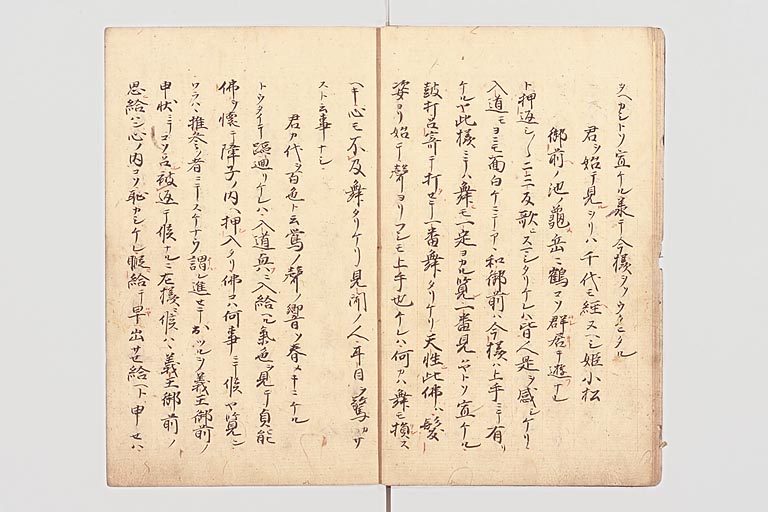 タヘカシトソ宣ケル暴テ今様ヲソウタヒケル
君ヲ始テ見ヲリハ千代モ経ヌヘシ姫小松
御前ノ池ノ龜岳ニ鶴コソ群居テ遊フレ
ト押返シ〱二三反歌ヒスマシタリケレハ皆人是ヲ感シケリ
入道モヨニモ面白ケニテア和御前ハ今様ハ上手ニテ有リ
ケルヤ此様ニテハ舞モ一定ヨカル覧一番見ハヤトソ宣ケル
鼓打召寄テ打セテ一番舞タリケリ天性此佛ハ髪
姿ヨリ始テ聲ヨリフシモ上手也ケレハ何カハ舞モ損ス
ヘキ心モ不及舞タリケリ見聞ノ人〻耳目ヲ驚カサ
スト云事ナシ
君カ代ヲ百色ト云鶯ノ聲ノ響ソ春メキニケル
トウタイテ踏廻リケレハ入道興ニ入給ヘル氣色ヲ見テ貞能
佛ヲ懐テ障子ノ内ヘ押入タリ佛コハ何事ニテ候ヤ覧
ワラハヽ推参ノ者ニテ謂レ進セテ出ツルヲ義王御前ノ
申状ニテコソ召被返テ候ナルニ左様ニ候ハヽ義王御前ノ
思給ハン心ノ内コソ恥カシケレ暇給テ早出サセ給ヘト申セハ